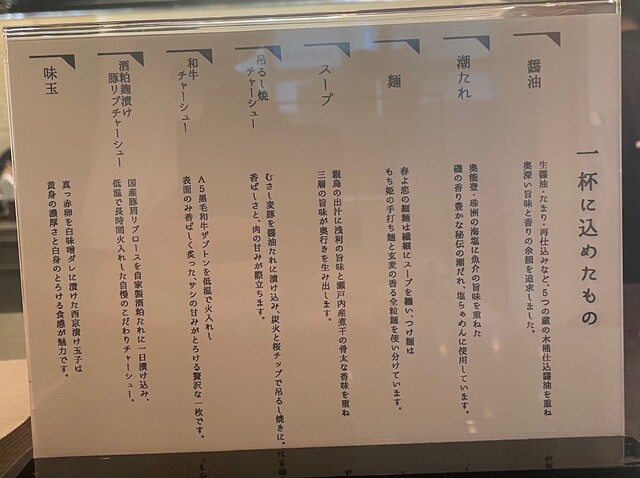 一杯に込めたもの
醤油
生醤油・たまり・再仕込みなど、5つの蔵の木桶仕込醤油を重ね
奥深い旨味と香りの余韻を追求しました。
潮たれ
奥能登・珠洲の海塩に魚介の旨味を重ねた
磯の香り豊かな秘伝の潮だれ、塩らぁめんに使用しています。
麺
春よ恋の細麺は繊細にスープを纏い、つけ麺は
もち姫の手打ち麺と玄麦の香る全粒麺を使い分けています。
スープ
親鳥の出汁に浅利の旨味と瀬戸内産煮干の骨太な香味を重ね
三層の旨味が奥行きを生み出します。
吊るし焼
チャーシュー
むさし麦豚を醤油たれに漬け込み、炭火と桜チップで吊るし焼きに。
香ばしさと、肉の甘みが際立ちます。
和牛
チャーシュー
A5黒毛和牛ザブトンを低温で火入れし
表面のみ香ばしく炙った、サシの甘みがとろける贅沢な一枚です。
酒粕麹漬け
豚リブチャーシュー
国産豚肩リブロースを自家製酒粕たれに一日漬け込み、
低温で長時間火入れした自慢のこだわりチャーシュー。
味玉
真っ赤卵を白味噌ダレに漬けた西京漬け玉子は
黄身の濃厚さと白身のとろける食感が魅力です。